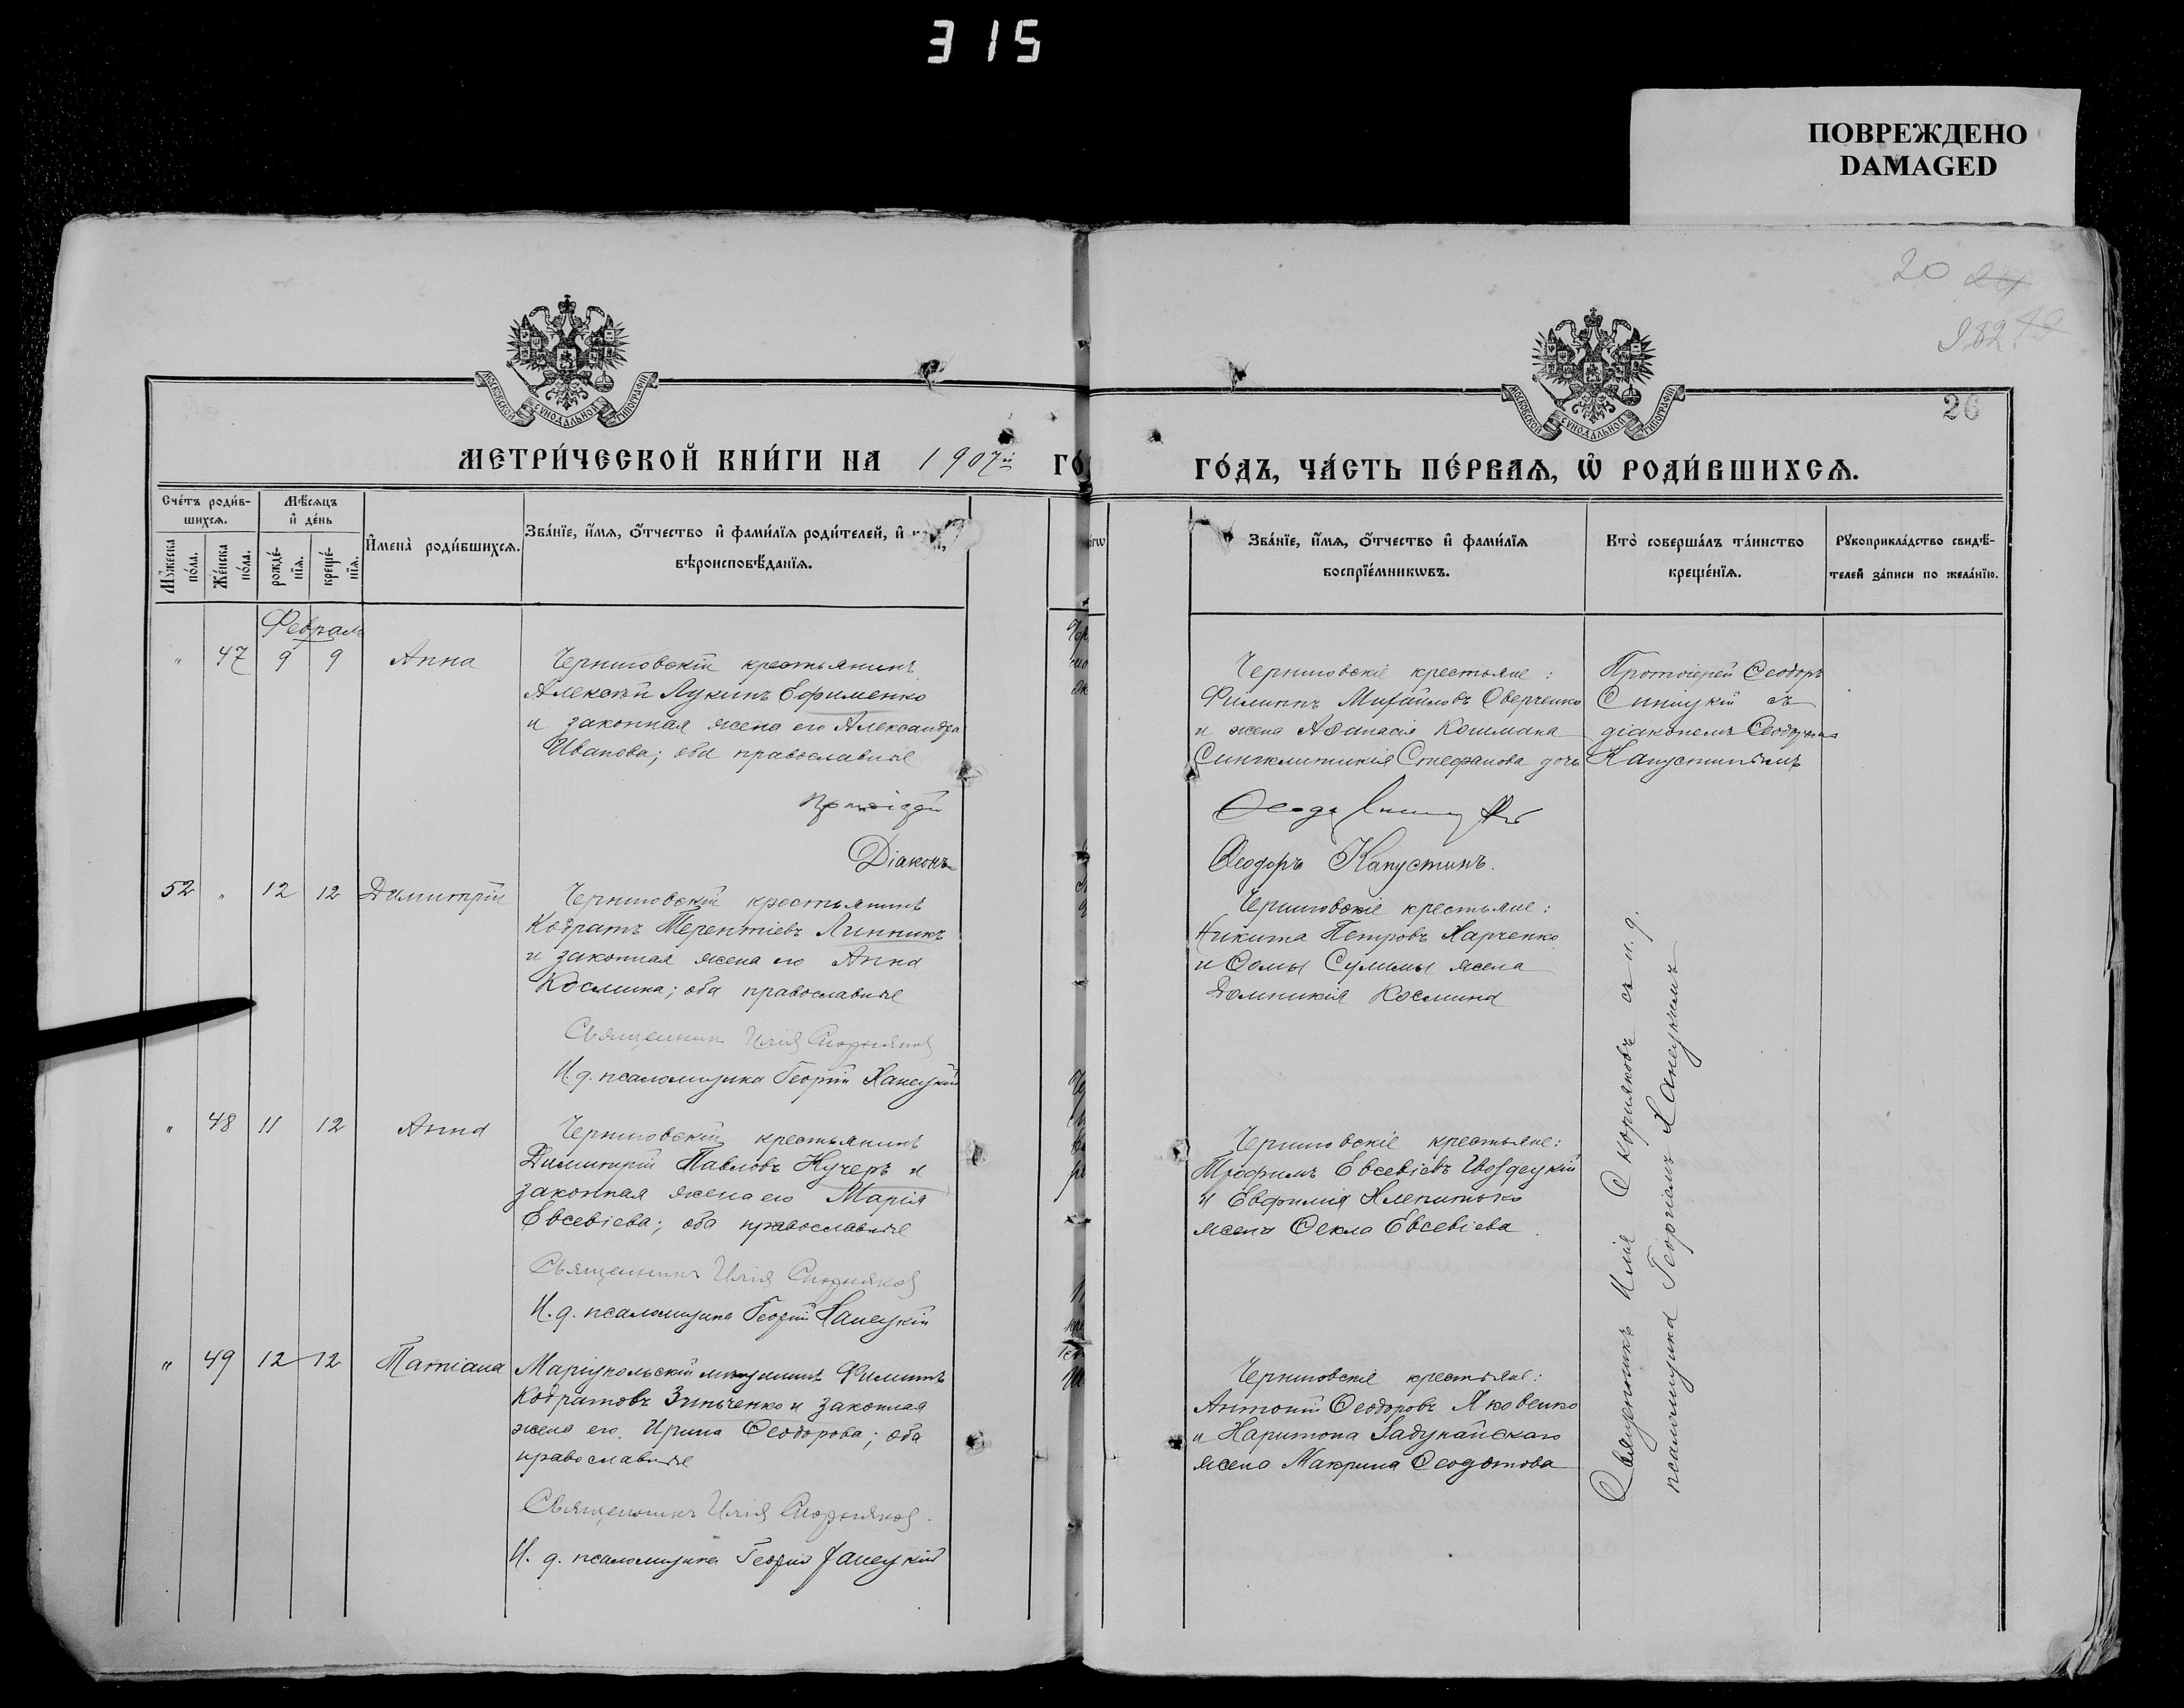 315
ПОВРЕЖДЕНО
DAMAGED
20 24
982
26
МОСКОВСКОЙ СѴНОДАЛЬНОЙ ТИПОГРАФІИ
МОСКОВСКОЙ СѴНОДАЛЬНОЙ ТИПОГРАФІИ
МЕТРИ́ЧЕСКОЙ КНИ́ГИ НА 1907й ГО́Д
ГО́ДЪ, ЧА́СТЬ ПЕ́РВАѦ, Ѡ҆ РОДИ́ВШИХСѦ.
Сче́тъ роди́в-
шихсѧ.
Мꙋ́жеска по́ла.
Же́нска по́ла.
Мѣ́сѧцъ
и҆ де́нь
рожде́-
нїѧ.
креще́-
нїѧ.
И҆мена̀ роди́вшихсѧ.
Зва́нїе, и҆́мѧ, о҆́тчество и҆ фами́лїѧ роди́телей, и҆
вѣроисповѣ́данїѧ.
Зва́нїе, и҆́мѧ, о҆́тчество и҆ фами́лїѧ
воспрїе́мникѡвъ.
Кто̀ соверша́лъ та́инство
креще́нїѧ.
Рꙋкоприкла́дство свидѣ́-
телей за́писи по жела́нїю.
Февраль
" 47 9 9 Анна
Черниговскій крестьянинъ
Алексѣй Лукинъ Ефименко
и законная жена его Александра
Иванова; оба православные
Протоіерей
Діаконъ
Черниговскіе крестьяне:
Филиппъ Михайловъ Оверченко
и жена Аѳанасія Кошмана
Синклитикія Стефанова дочь
Ѳеодоръ Капустинъ.
Протоіерей Ѳеодоръ
Синицкій съ
діакономъ Ѳеодоромъ
Капустинымъ
52 " 12 12 Димитрій
Черниговскій крестьянинъ
Кодратъ Терентіевъ Линникъ
и законная жена его Анна
Космина; оба православные
Священникъ Илія Скорняковъ
И. д. псаломщика Георгій Ханецкій
Черниговскіе крестьяне:
Никита Петровъ Харченко
и Ѳомы Сулимы жена
Домникія Космина
Священникъ Илія Скорняковъ съ и. д.
псаломщика Георгіемъ Ханецкимъ
" 48 11 12 Анна
Черниговскій крестьянинъ
Димитрій Павловъ Кучеръ и
законная жена его Марія
Евсевіева; оба православные
Священникъ Илія Скорняковъ
И. д. псаломщика Георгій Ханецкій
Черниговскіе крестьяне:
Трофимъ Евсевіевъ Гвоздецкій
и Евфимія Клепитько
жена Ѳекла Евсевіева
" 49 12 12 Татіана
Маріупольскій мѣщанинъ Филиппъ
Кодратовъ Зинченко и законная
жена его Ирина Ѳеодорова; оба
православные
Священникъ Илія Скорняковъ.
И. д. псаломщика Георгій Ханецкій
Черниговскіе крестьяне:
Антоній Ѳеодоровъ Яковенко
и Харитона Задунайскаго
жена Макрина Ѳеодотова